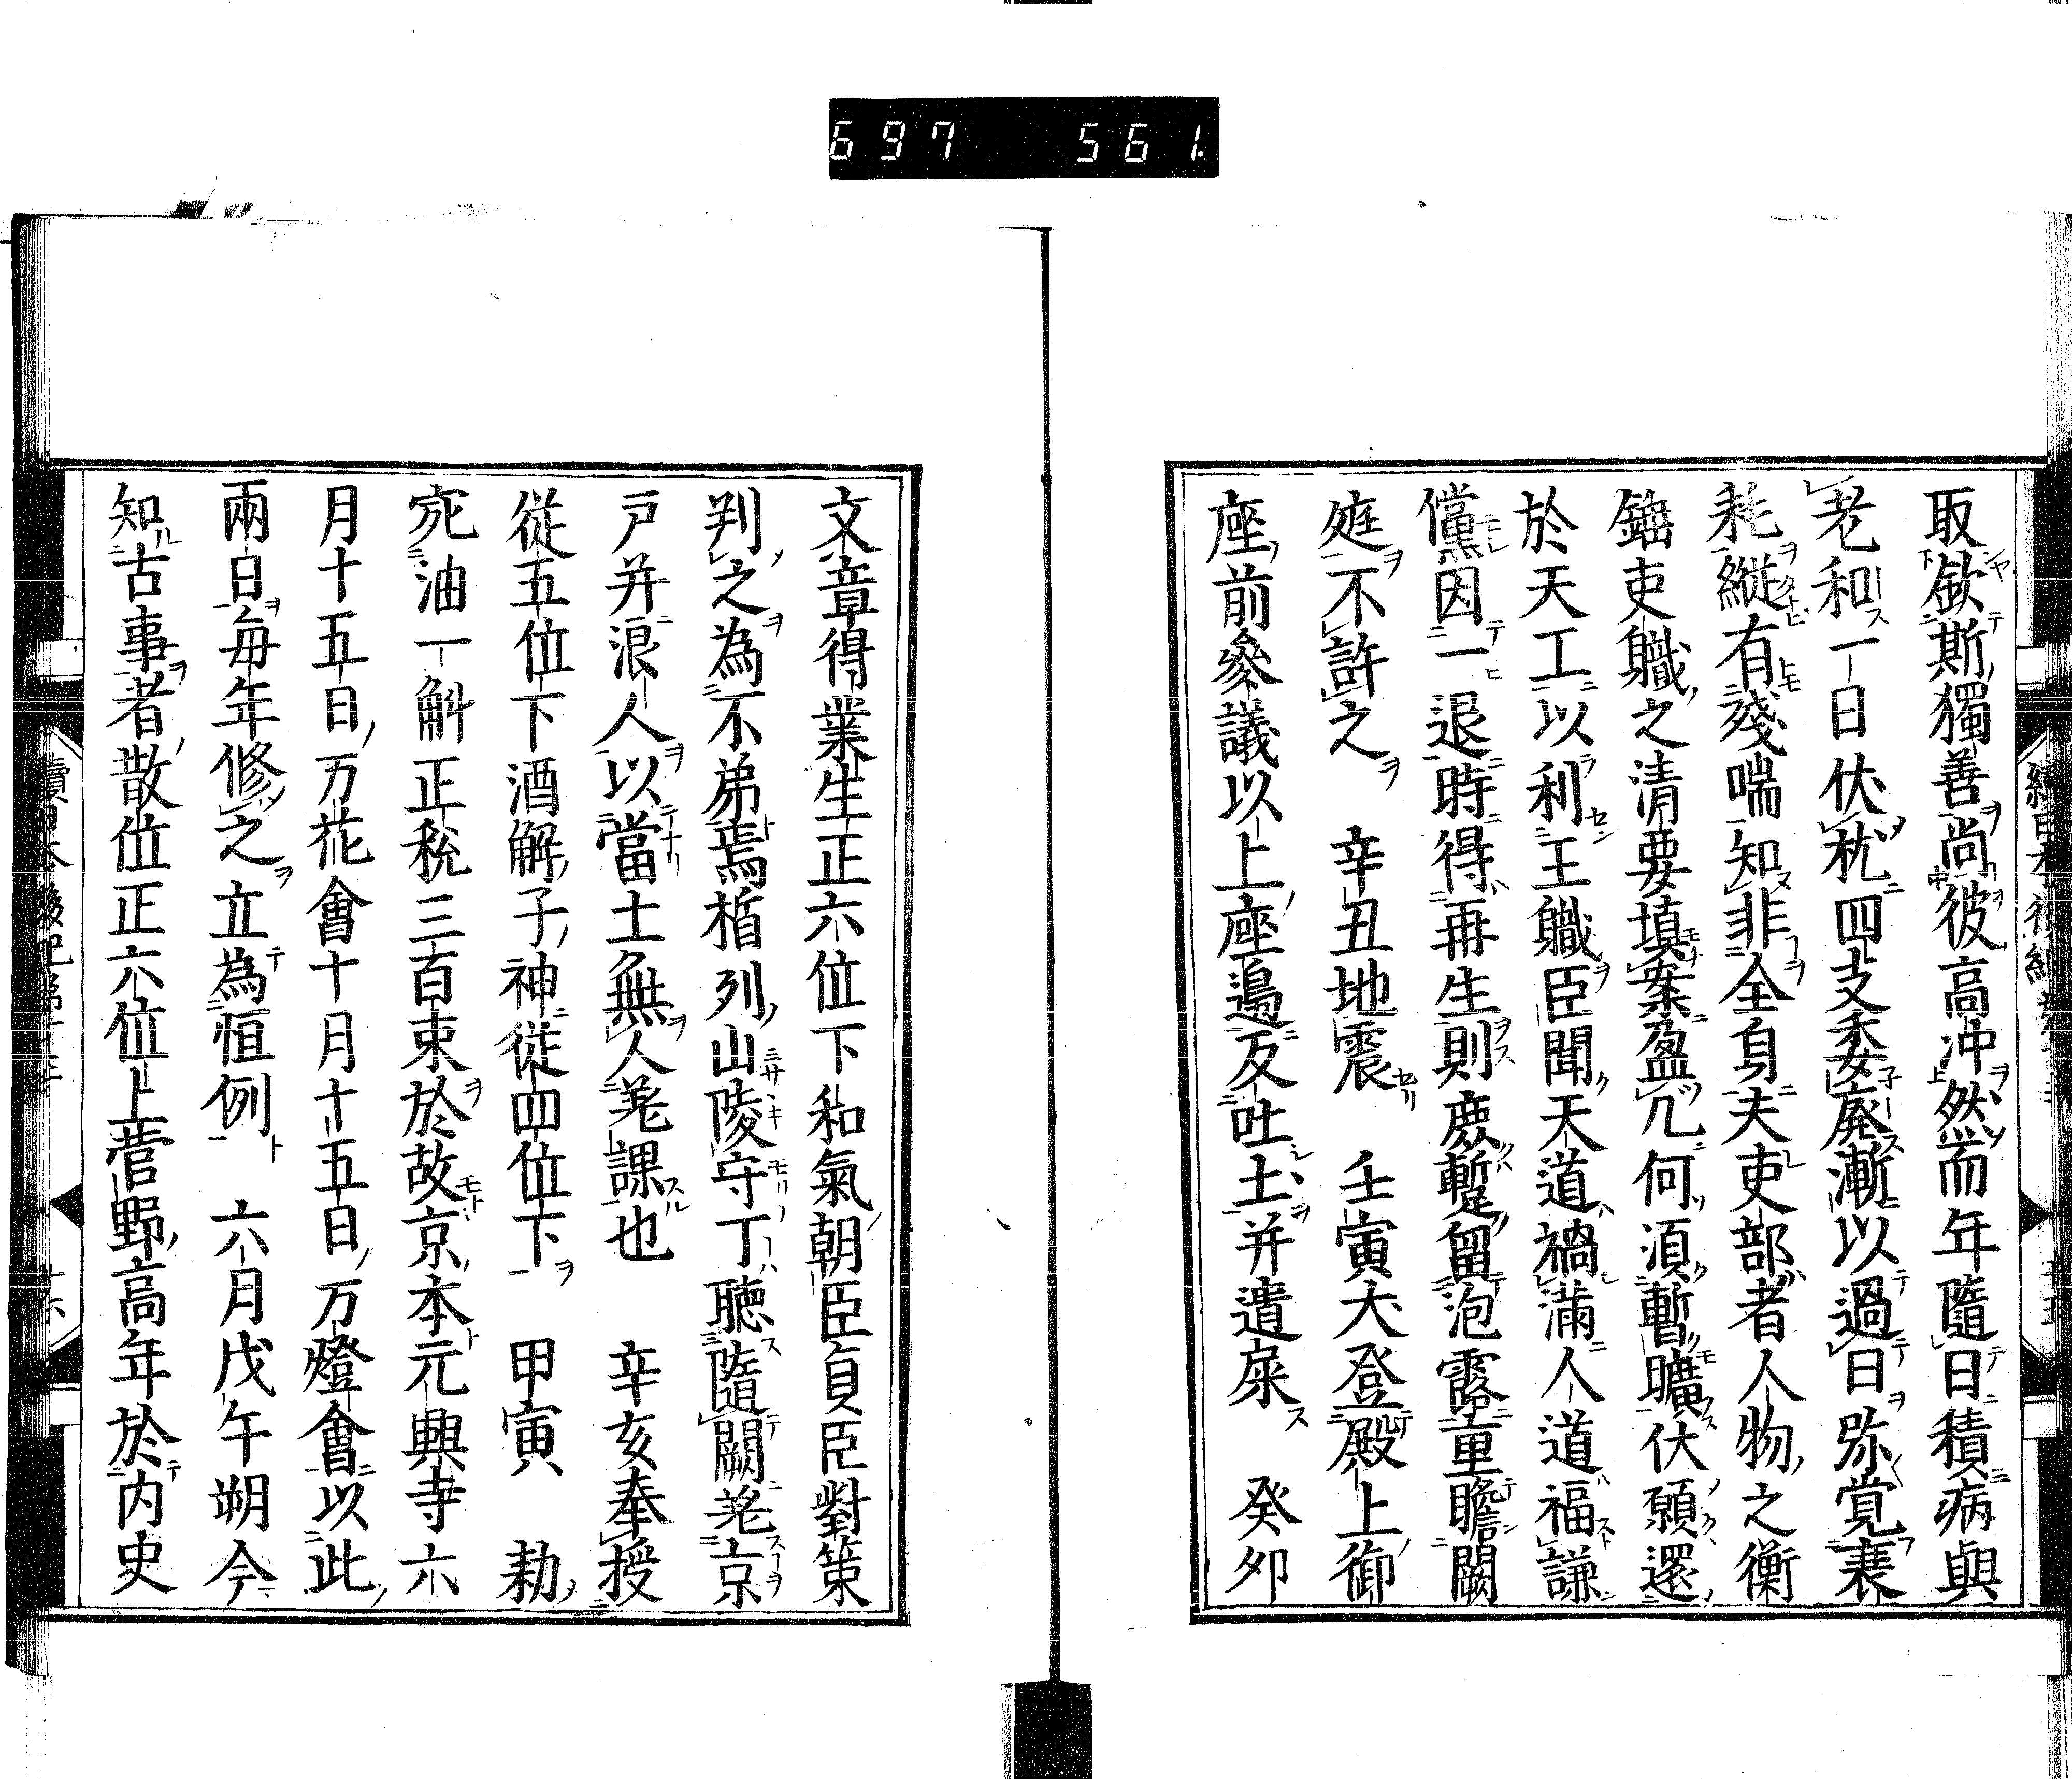 697 561.
取歛斯獨善尚彼高冲然而年隨日積病與
老和一日伏枕四支委廃漸以過日弥覚衰
耗縦有殘喘知非全身夫吏部者人物之衡
鏡吏職之清要填案盈几何湏暫曠伏願還
於天工以利王職臣聞天道禍満人道福謙
儻因一退時得再生則慶蹔留泡露重瞻闕
庭不許之 辛丑地震 壬寅犬登殿上御
座前參議以上座邊及吐土并遺屎 癸夘
文章得業生正六位下和氣朝臣貞臣對策
判之為不第焉楯列山陵守丁聴隨闕差京
戸并浪人以當土無人差課也 辛亥奉授
從五位下酒解子神從四位下 甲寅 勅
宛油一斛正税三百束於故京本元興寺六
月十五日万花會十月十五日万燈會以此
兩日毎年修之立為恒例 六月戊午朔令
知古事者散位正六位上菅野高年於内史